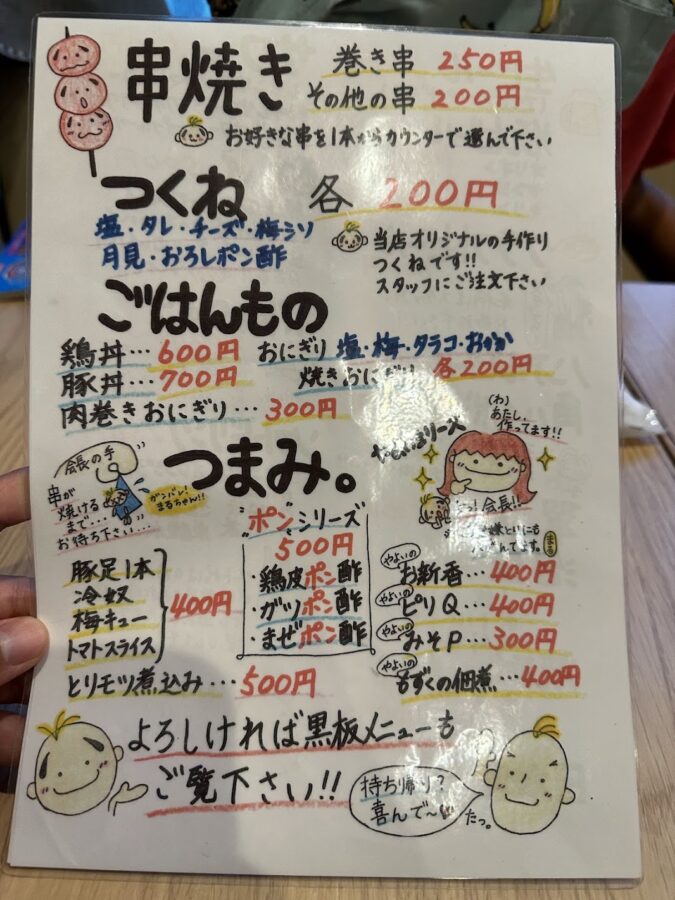 串焼き
巻き串 250円
その他の串 200円
お好きな串を1本からカウンターで選んで下さい
つくね 各 200円
塩・タレ・チーズ・梅シソ
月見・おろしポン酢
当店オリジナルの手作り
つくねです!!
スタッフにご注文下さい
ごはんもの
鶏丼…600円
豚丼…700円
肉巻きおにぎり…300円
おにぎり 塩・梅・タラコ・おかか
焼きおにぎり 各200円
つまみ。
会長の手
串が
焼ける
まで…
お待ち下さい…
ガンバレ!
まるちゃん!!
ポンシリーズ
500円
・鶏皮ポン酢
・ガツポン酢
・まぜポン酢
シリーズ
(わ)
あたし、
作ってます!!
会長!!
豚足1本
冷奴
梅キュー
トマトスライス
400円
とりモツ煮込み…500円
やよいの
お新香…400円
やよいの
ピリQ…400円
やよいの
みそP…300円
やよいの
もずくの佃煮…400円
よろしければ黒板メニューも
ご覧下さい!!
持ち帰り?
喜んで〜
たっ。